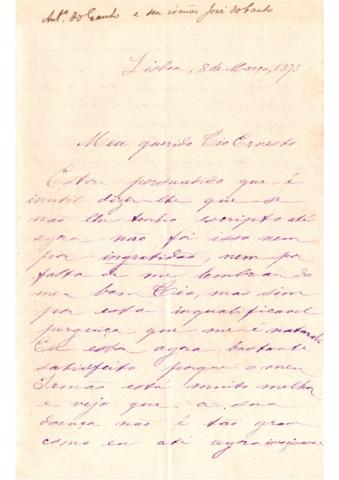 Antº. do Canto e seu irmão José do Canto
Lisboa, 8 de Março, 1873
Meu querido Tio Ernesto
Estou persuadido que é
inutil dizer-lhe que se
não lhe tenho escripto até
agora não foi isso nem
por ingratidão, nem por
falta de me lembrar do
meu bom Tio, mas sim
por esta inqualificavel
perguiça que me é natural.
Eu estou agora bastante
satisfeito porque o meu
Irmão está muito melhor
e vejo que a sua
doença não é tão grave
como eu até agora imaginava